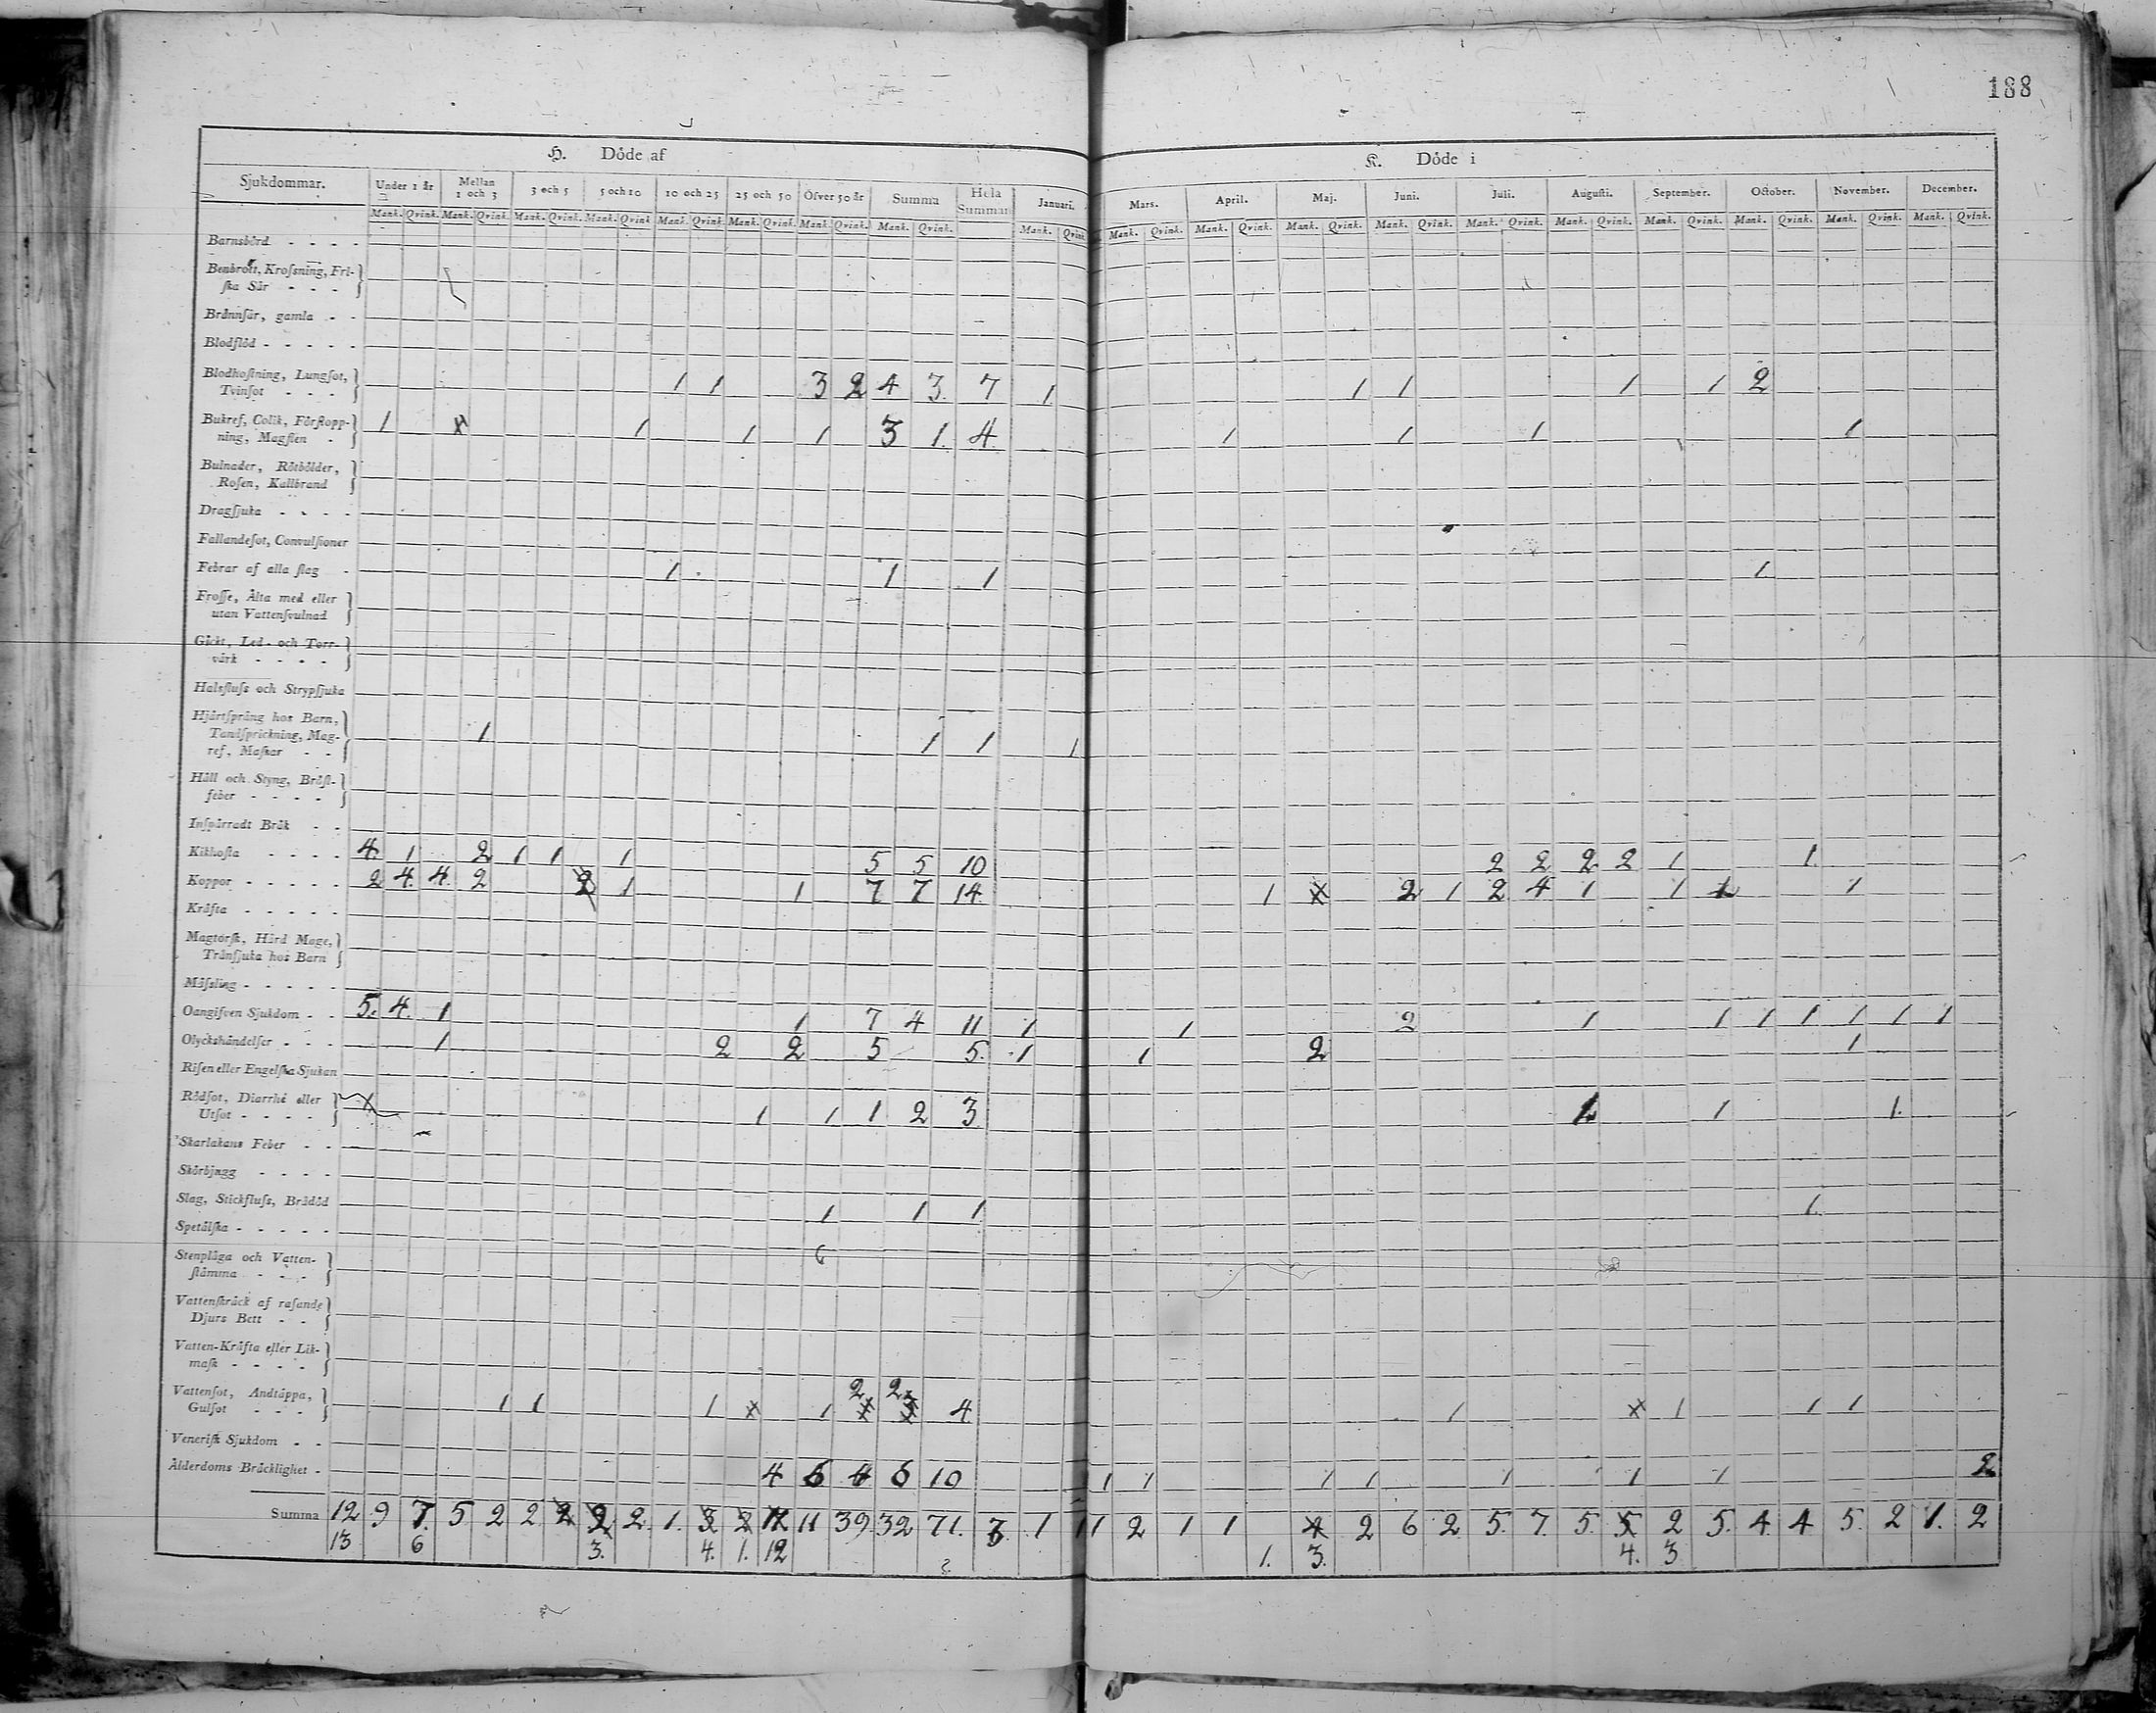 188
H. Döde af
K. Döde i
Sjukdommar. Under 1 år Mellan 1 och 3 3 och 5 5 och 10 10 och 25 25 och 50 Öfver 50 år Summa Hela Summan Januari. Mars. April. Maj. Juni. Juli. Augusti. September. October. November. December.
Mank. Qvink. Mank. Qvink. Mank. Qvink. Mank. Qvink. Mank. Qvink. Mank. Qvink. Mank. Qvink. Mank. Qvink. Mank. Qvink. Mank. Qvink. Mank. Qvink. Mank. Qvink. Mank. Qvink. Mank. Qvink. Mank. Qvink. Mank. Qvink. Mank. Qvink. Mank. Qvink. Mank. Qvink.
Barnsbörd - - - -
Benbrott, Kroſsning, Fri-
ſka Sår - - -
Brännſår, gamla - -
Blodflöd - - - - -
Blodhoſtning, Lungſot,
Tvinſot - - - 1 1 3 2 4 3. 7 1 1 1 1 1 2
Bukref, Colik, Förſtopp-
ning, Magſten - 1 1 1 1 3 1. 4. 1 1 1 1
Bulnader, Rötbölder,
Roſen, Kallbrand
Dragſjuka - - - -
Fallandeſot, Convulſioner
Febrar af alla ſlag - 1 1 1 1.
Froſſe, Älta med eller
utan Vattenſvulnad
Gickt, Led- och Torr-
värk - - - -
Halsfluſs och Strypſjuka
Hjärtſprång hos Barn,
Tandſprickning, Mag-
ref, Maſkar - - 1 1 1 1
Håll och Styng, Bröſt-
feber - - - -
Inſpärradt Bråk - -
Kikhoſta - - - - 4. 1 2 1 1 1 5 5 10 2 2 2 2 1 1.
Koppor - - - - - 2 4. 4. 2 2 1 1 7 7 14. 1 2 1 2 4 1 1 1 1
Kräfta - - - - -
Magtorſk, Hård Mage,
Tränſjuka hos Barn
Mäſsling - - - - -
Oangifven Sjukdom - - 5. 4. 1 1 7 4 11 1 1 2 1 1 1 1 1 1 1
Olyckshändelſer - - - 1 2 2 5 5. 1 1 2 1
Riſen eller Engelſka Sjukan
Rödſot, Diarrhé eller
Utſot - - - - 1 1 1 2 3 1 1 1.
Skarlakans Feber - -
Skörbjugg - - - -
Slag, Stickfluſs, Brådöd 1 1 1 1.
Spetälſka - - - - -
Stenplåga och Vatten-
ſtämma - - -
Vattenſkräck af raſande
Djurs Bett - -
Vatten-Kräfta eller Lik-
maſk - - - -
2 2
Vattenſot, Andtäppa,
Gulſot - - - 1 1 1 1 4 1 1 1 1
Veneriſk Sjukdom - -
Ålderdoms Bräcklighet - 4 6 4 6 10 1 1 1 1 1 1 1 2
Summa 12 9 7. 5 2 2 2 2 2. 1. 3 2 12 11 39. 32 71. 1 1 2 1 1 4 2 6 2 5. 7. 5. 5 2 5. 4. 4 5. 2 1. 2
13 6 3. 4. 1. 12 1. 3. 4. 3